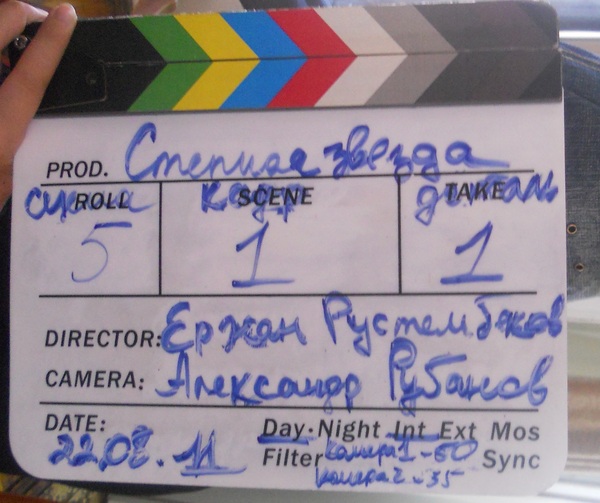 PROD. Степная звезда
ROLL SCENE TAKE
сцена кадр дубль
5 1 1
DIRECTOR: Ержан Рустембеков
CAMERA: Александр Рубанов
DATE: Day·Night Int Ext Mos
22.08.11 Filter камера 1-50 Sync
камера 2-35